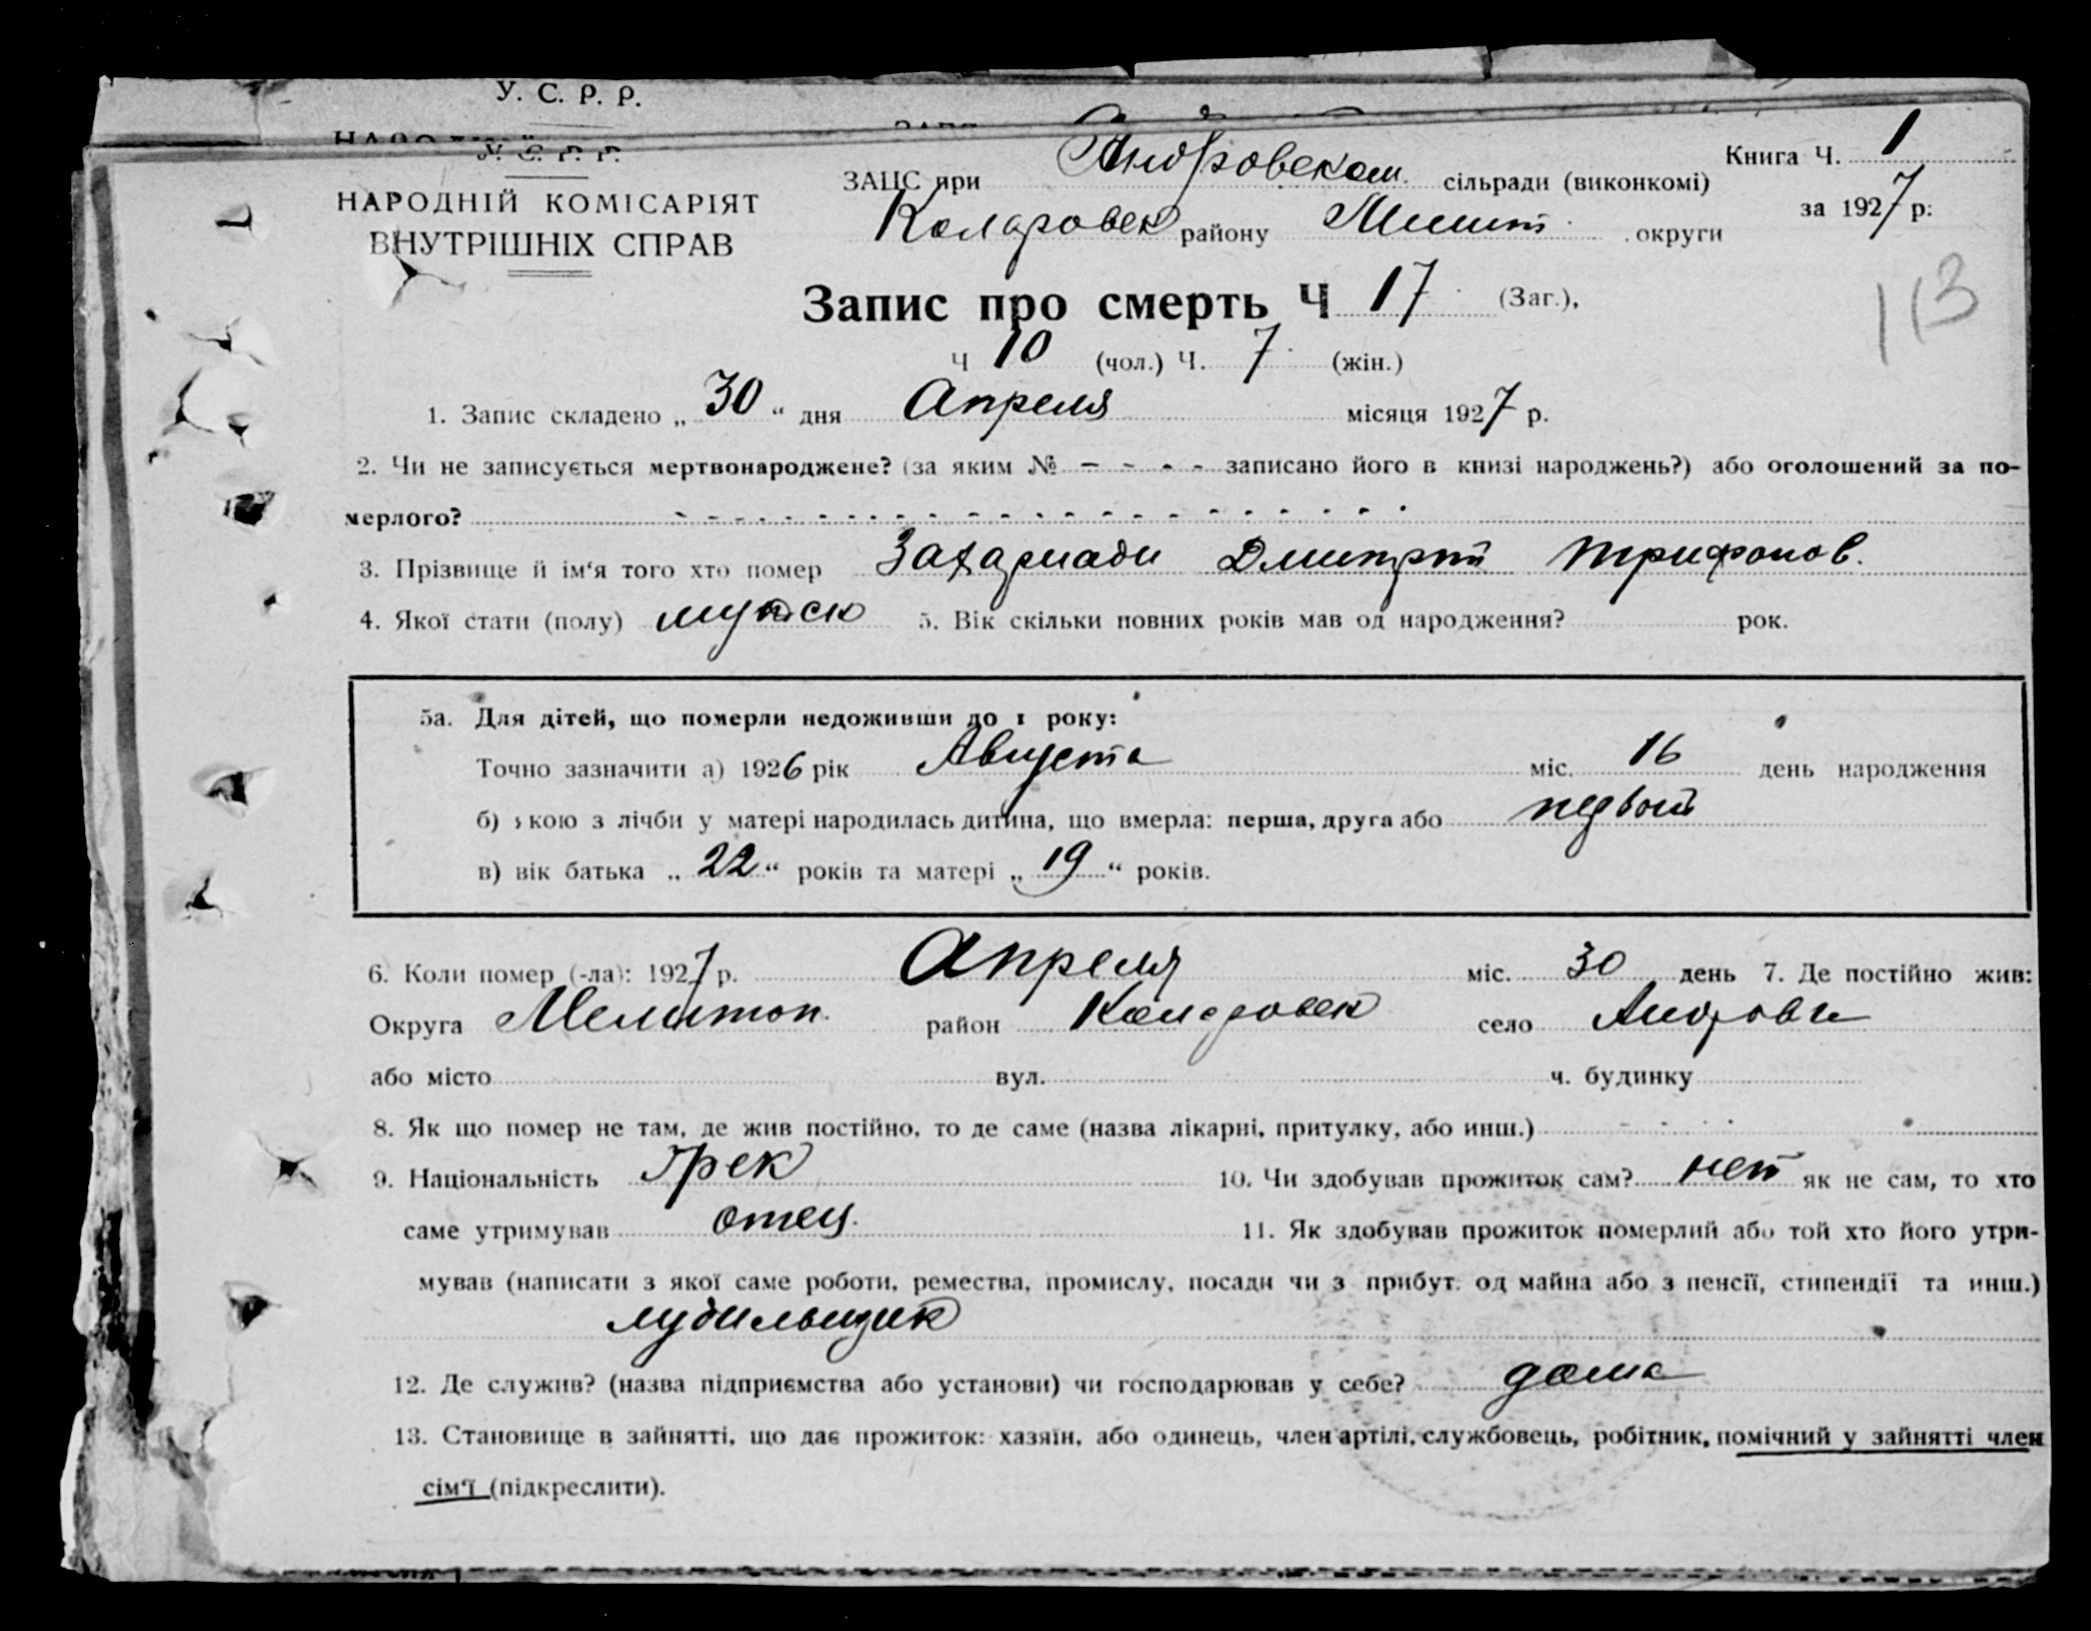 У. С. Р. Р.
У. С. Р. Р.
НАРОДНІЙ КОМІСАРІЯТ
ВНУТРІШНІХ СПРАВ
Книга Ч. 1
ЗАЦС при Андровском сільради (виконкомі)
за 1927 р:
Коларовск району Мелит. округи
113
Запис про смерть Ч 17 (Заг.),
Ч 10 (чол.) Ч. 7 (жін.)
1. Запис складено „ 30 “ дня Апреля місяця 1927 р.
2. Чи не записується мертвонароджене? (за яким № - - - - записано його в книзі народжень?) або оголошений за по-
мерлого?
3. Прізвище й ім‘я того хто помер Захариади Дмитрий Трифонов.
4. Якої стати (полу) мужск 5. Вік скільки повних років мав од народження? рок.
5а. Для дітей, що померли недоживши до 1 року:
Точно зазначити а) 1926 рік Августа міс. 16 день народження
б) якою з лічби у матері народилась дитина, що вмерла: перша, друга або первой
в) вік батька „ 22 “ років та матері „ 19 “ років.
6. Коли помер (-ла): 1927 р. Апреля міс. 30 день 7. Де постійно жив:
Округа Мелитоп. район Коларовск село Андровка
або місто вул. ч. будинку
8. Як що помер не там, де жив постійно, то де саме (назва лікарні, притулку, або инш.)
9. Національність Грек 10. Чи здобував прожиток сам? нет як не сам, то хто
саме утримував отец. 11. Як здобував прожиток померлий або той хто його утри-
мував (написати з якої саме роботи, ремества, промислу, посади чи з прибут. од майна або з пенсії, стипендії та инш.)
лудильщик
12. Де служив? (назва підприємства або установи) чи господарював у себе? дома
13. Становище в зайнятті, що дає прожиток: хазяїн, або одинець, член артілі, службовець, робітник, помічний у зайнятті член
сім‘ї (підкреслити).